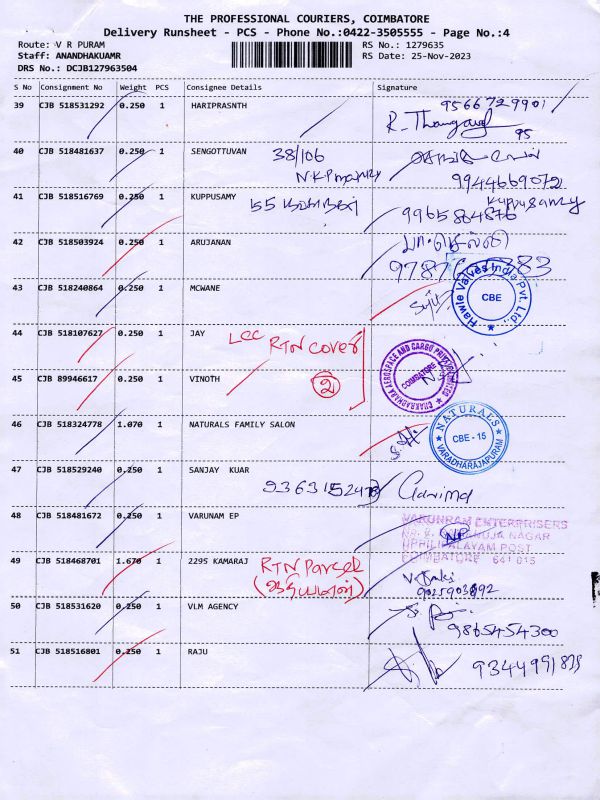 THE PROFESSIONAL COURIERS, COIMBATORE
Delivery Runsheet - PCS - Phone No.:0422-3505555 - Page No.:4
Route: V R PURAM
RS No.: 1279635
Staff: ANANDHAKUAMR
RS Date: 25-Nov-2023
DRS No.: DCJB127963504
S No Consignment No Weight PCS Consignee Details Signature
39 CJB 518531292 0.250 1 HARIPRASNTH 9566729901
R. Thangavel
95
40 CJB 518481637 0.250 1 SENGOTTUVAN 38/106
9944669072
41 CJB 518516769 0.250 1 KUPPUSAMY 55 Kuppusamy
9965884876
42 CJB 518503924 0.250 1 ARUJANAN
43 CJB 518240864 0.250 1 MCWANE Sujit
Hawle Valves India Pvt. Ltd.
CBE
44 CJB 518107627 0.250 1 JAY LCC RTN cover
45 CJB 89946617 0.250 1 VINOTH 2
CHAKRADHARA AEROSPACE AND CARGO PRIVATE LIMITED
COIMBATORE
46 CJB 518324778 1.070 1 NATURALS FAMILY SALON
NATURALS
CBE - 15
VARADHARAJAPURAM
47 CJB 518529240 0.250 1 SANJAY KUAR
48 CJB 518481672 0.250 1 VARUNAM EP
VARUNRAM ENTERPRISERS
RAMANUJA NAGAR
UPPILIPALAYAM POST
COIMBATORE 641 015
49 CJB 518468701 1.670 1 2295 KAMARAJ RTN Parcel
9025903892
50 CJB 518531620 0.250 1 VLM AGENCY
9865454300
51 CJB 518516801 0.250 1 RAJU